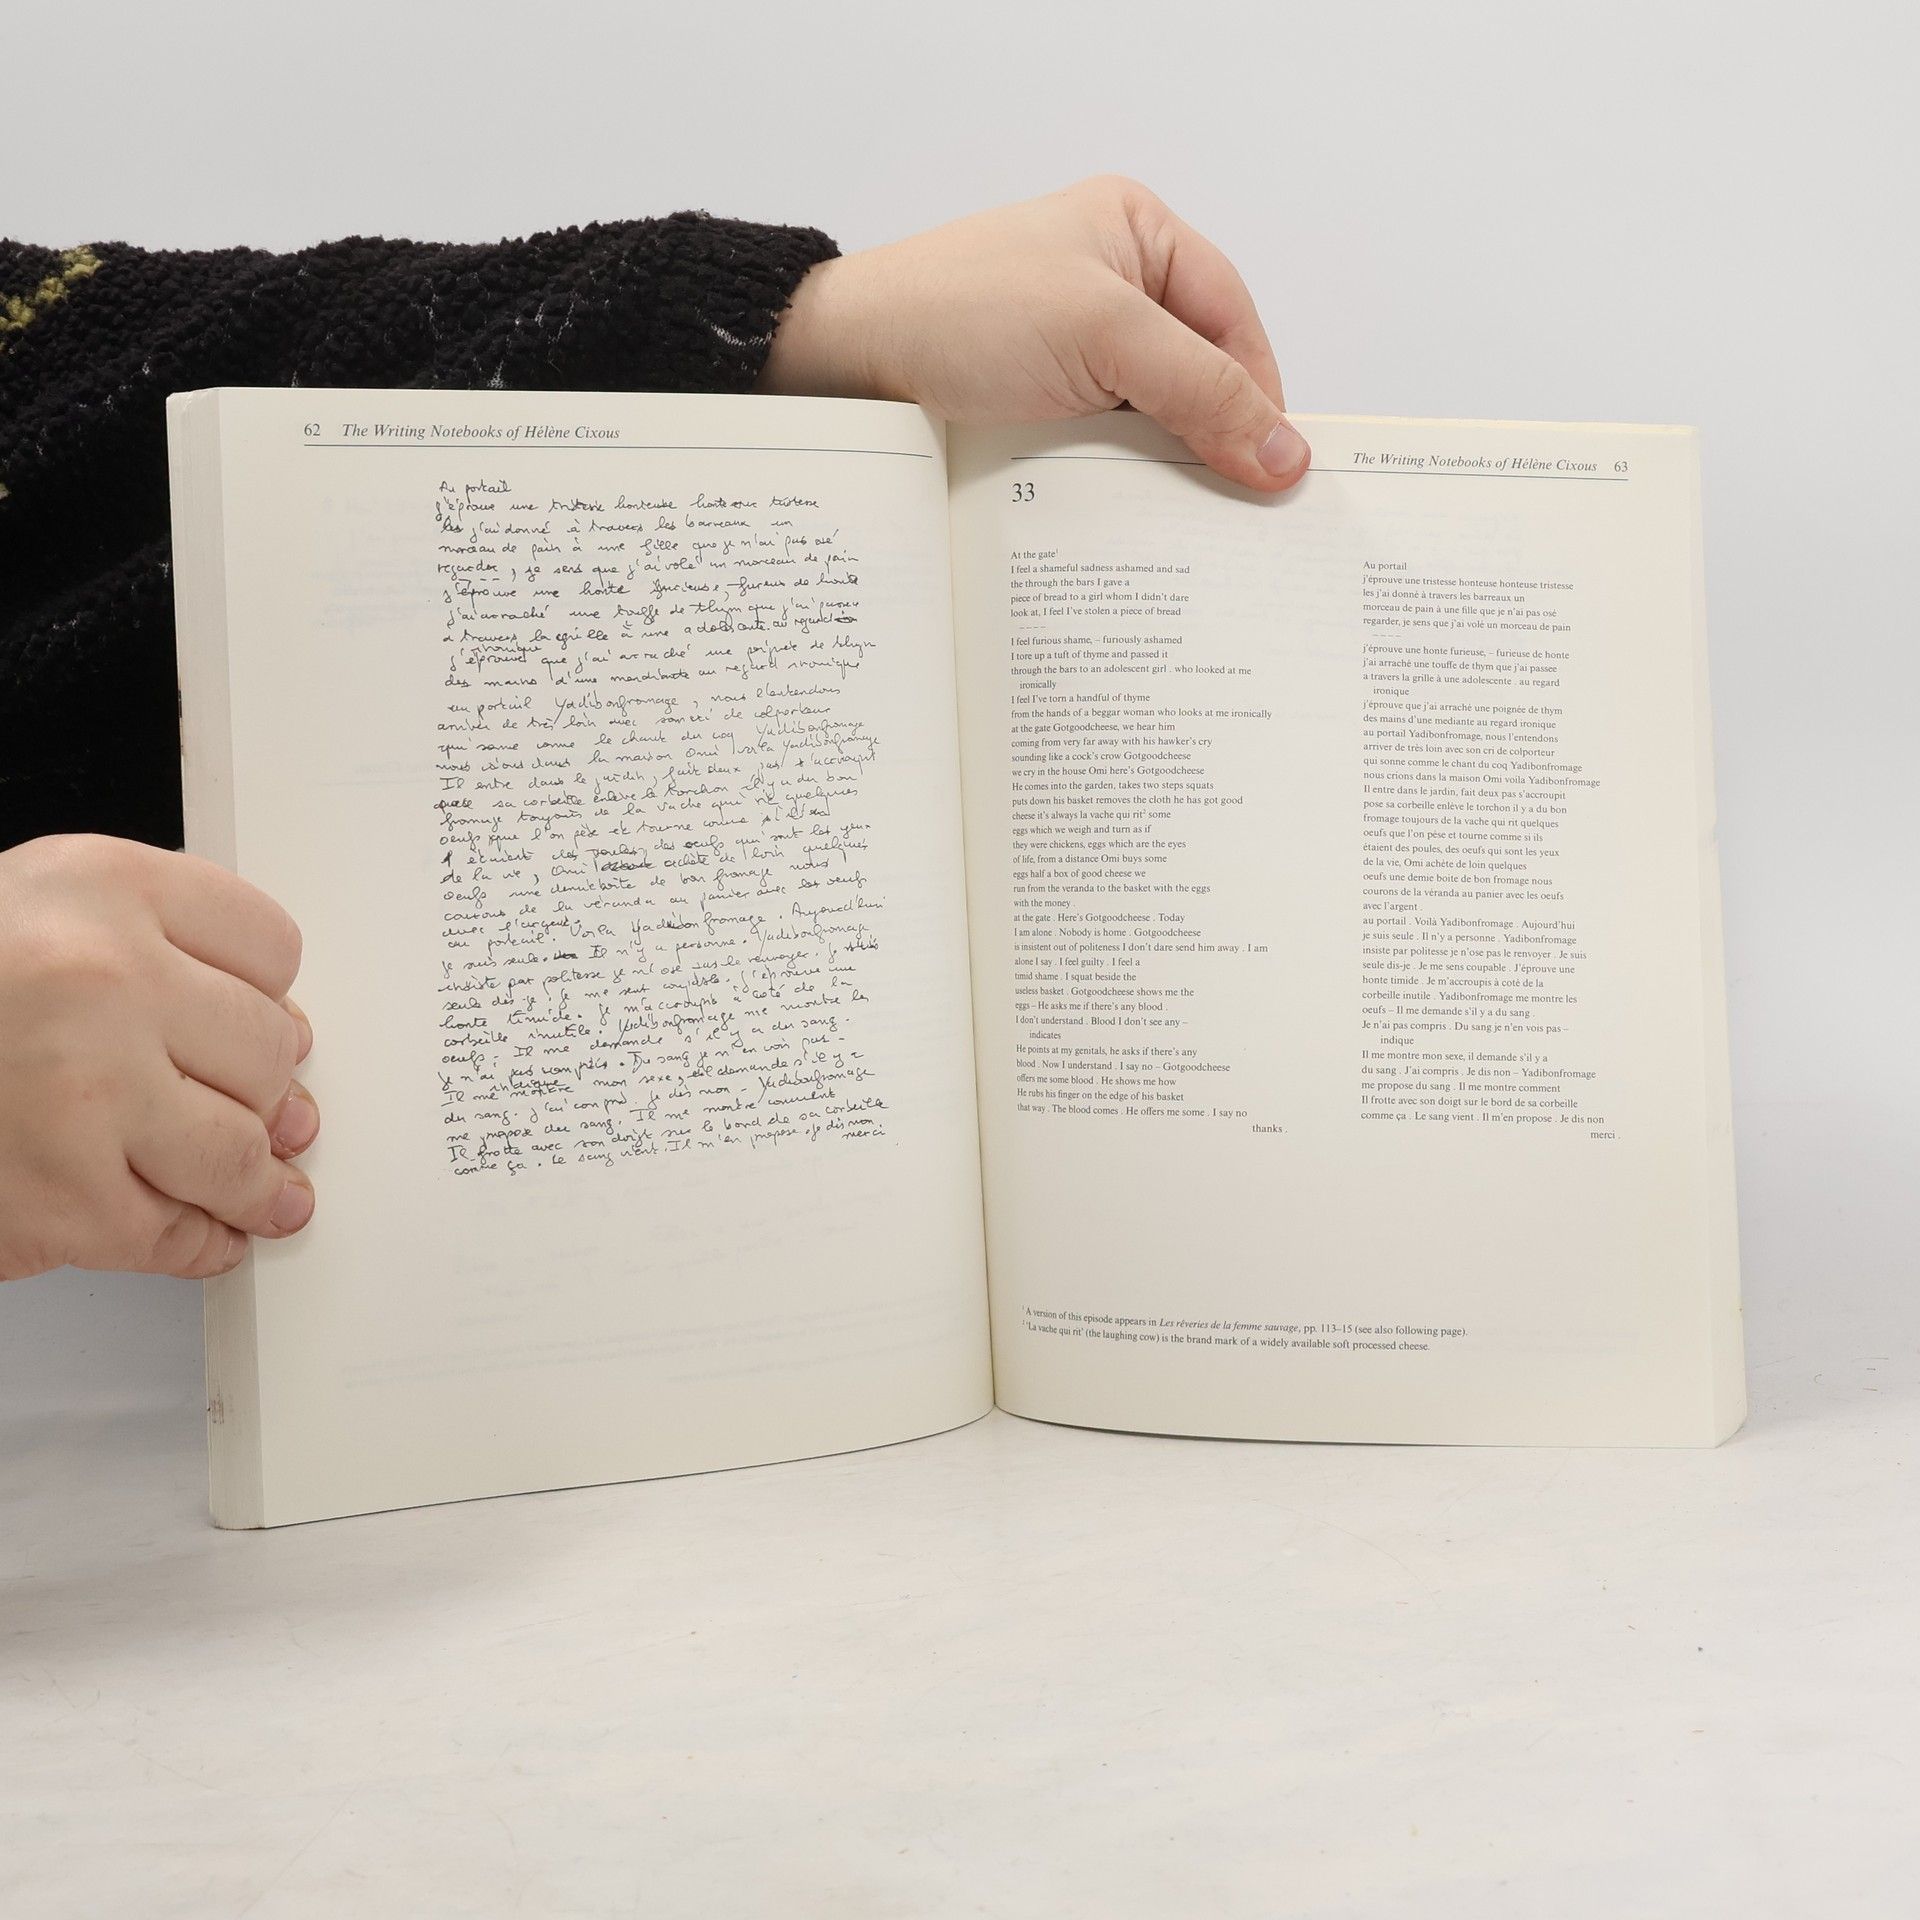 62 The Writing Notebooks of Hélène Cixous
Au portail
j'éprouve une tristesse honteuse honteuse tristesse
les j'ai donné à travers les barreaux un
morceau de pain à une fille que je n'ai pas osé
regarder, je sens que j'ai volé un morceau de pain
– – – –
j'éprouve une honte furieuse, – furieux de honte
j'ai arraché une touffe de thym que j'ai passée
a travers la grille à une adolescente. au regard
ironique
j'éprouve que j'ai arraché une poignée de thym
des mains d'une mendiante au regard ironique
au portail Yadibonfromage, nous l'entendons
arriver de très loin avec son cri de colporteur
qui sonne comme le chant du coq Yadibonfromage
nous crions dans la maison Omi voila Yadibonfromage
Il entre dans le jardin, fait deux pas s'accroupit
pose sa corbeille enlève le torchon il y a du bon
fromage toujours de la vache qui rit quelques
oeufs que l'on pèse et tourne comme si ils
étaient des poules, des oeufs qui sont les yeux
de la vie, Omi achète de loin quelques
oeufs une demie boite de bon fromage nous
courons de la véranda au panier avec les oeufs
avec l'argent.
au portail. Voila Yadibonfromage. Aujourd'hui
je suis seule. Il n'y a personne. Yadibonfromage
insiste par politesse je n'ose pas le renvoyer. Je suis
seule dis-je. Je me sens coupable. J'éprouve une
honte timide. Je m'accroupis à coté de la
corbeille inutile. Yadibonfromage me montre les
oeufs – Il me demande s'il y a du sang.
Je n'ai pas compris. Du sang je n'en vois pas –
indique
Il me montre mon sexe, il demande s'il y a
du sang. J'ai compris. Je dis non – Yadibonfromage
me propose du sang. Il me montre comment
Il frotte avec son doigt sur le bord de sa corbeille
comme ça. Le sang vient. Il m'en propose. Je dis non
merci.
The Writing Notebooks of Hélène Cixous 63
33
At the gate¹
I feel a shameful sadness ashamed and sad
the through the bars I gave a
piece of bread to a girl whom I didn't dare
look at, I feel I've stolen a piece of bread
– – – –
I feel furious shame, – furiously ashamed
I tore up a tuft of thyme and passed it
through the bars to an adolescent girl . who looked at me
ironically
I feel I've torn a handful of thyme
from the hands of a beggar woman who looks at me ironically
at the gate Gotgoodcheese, we hear him
coming from very far away with his hawker's cry
sounding like a cock's crow Gotgoodcheese
we cry in the house Omi here's Gotgoodcheese
He comes into the garden, takes two steps squats
puts down his basket removes the cloth he has got good
cheese it's always la vache qui rit² some
eggs which we weigh and turn as if
they were chickens, eggs which are the eyes
of life, from a distance Omi buys some
eggs half a box of good cheese we
run from the veranda to the basket with the eggs
with the money .
at the gate . Here's Gotgoodcheese . Today
I am alone . Nobody is home . Gotgoodcheese
is insistent out of politeness I don't dare send him away . I am
alone I say . I feel guilty . I feel a
timid shame . I squat beside the
useless basket . Gotgoodcheese shows me the
eggs – He asks me if there's any blood .
I don't understand . Blood I don't see any –
indicates
He points at my genitals, he asks if there's any
blood . Now I understand . I say no – Gotgoodcheese
offers me some blood . He shows me how
He rubs his finger on the edge of his basket
that way . The blood comes . He offers me some . I say no
thanks .
Au portail
j'éprouve une tristesse honteuse honteuse tristesse
les j'ai donné à travers les barreaux un
morceau de pain à une fille que je n'ai pas osé
regarder, je sens que j'ai volé un morceau de pain
– – – –
j'éprouve une honte furieuse, – furieuse de honte
j'ai arraché une touffe de thym que j'ai passee
a travers la grille à une adolescente . au regard
ironique
j'éprouve que j'ai arraché une poignée de thym
des mains d'une mediante au regard ironique
au portail Yadibonfromage, nous l'entendons
arriver de très loin avec son cri de colporteur
qui sonne comme le chant du coq Yadibonfromage
nous crions dans la maison Omi voila Yadibonfromage
Il entre dans le jardin, fait deux pas s'accroupit
pose sa corbeille enlève le torchon il y a du bon
fromage toujours de la vache qui rit quelques
oeufs que l'on pèse et tourne comme si ils
étaient des poules, des oeufs qui sont les yeux
de la vie, Omi achète de loin quelques
oeufs une demie boite de bon fromage nous
courons de la véranda au panier avec les oeufs
avec l'argent .
au portail . Voilà Yadibonfromage . Aujourd'hui
je suis seule . Il n'y a personne . Yadibonfromage
insiste par politesse je n'ose pas le renvoyer . Je suis
seule dis-je . Je me sens coupable . J'éprouve une
honte timide . Je m'accroupis à coté de la
corbeille inutile . Yadibonfromage me montre les
oeufs – Il me demande s'il y a du sang .
Je n'ai pas compris . Du sang je n'en vois pas –
indique
Il me montre mon sexe, il demande s'il y a
du sang . J'ai compris . Je dis non – Yadibonfromage
me propose du sang . Il me montre comment
Il frotte avec son doigt sur le bord de sa corbeille
comme ça . Le sang vient . Il m'en propose . Je dis non
merci .
¹ A version of this episode appears in Les rêveries de la femme sauvage, pp. 113–15 (see also following page).
² 'La vache qui rit' (the laughing cow) is the brand mark of a widely available soft processed cheese.